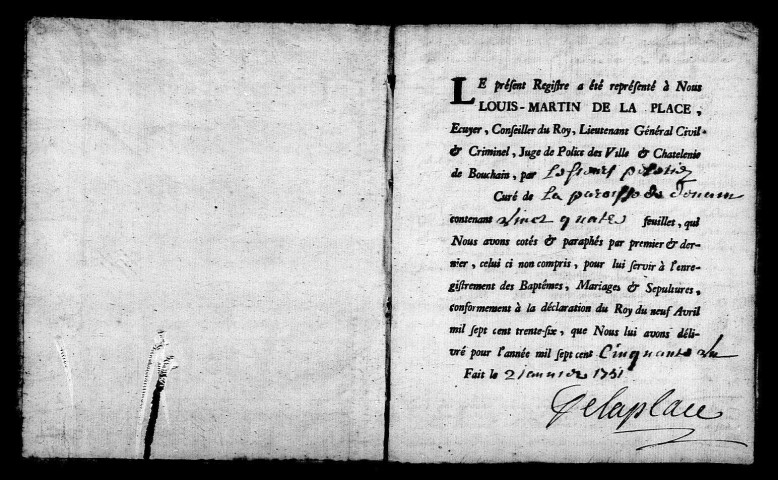 LE préſent Regiſtre a été repréſenté à Nous
LOUIS-MARTIN DE LA PLACE,
Ecuyer, Conſeiller du Roy, Lieutenant Général Civil
& Criminel, Juge de Police des Ville & Chatelenie
de Bouchain, par
Curé de la paroisse de
contenant vinct quatre feuilles, qui
Nous avons cotés & paraphés par premier & der-
nier, celui ci non compris, pour lui ſervir à l'enre-
giſtrement des Baptêmes, Mariages & Sepultures,
conformement à la déclaration du Roy du neuf Avril
mil ſept cent trente-ſix, que Nous lui avons déli-
vré pour l'année mil ſept cent Cinquante un
Fait le 2 Janvier 1751
Delaplace